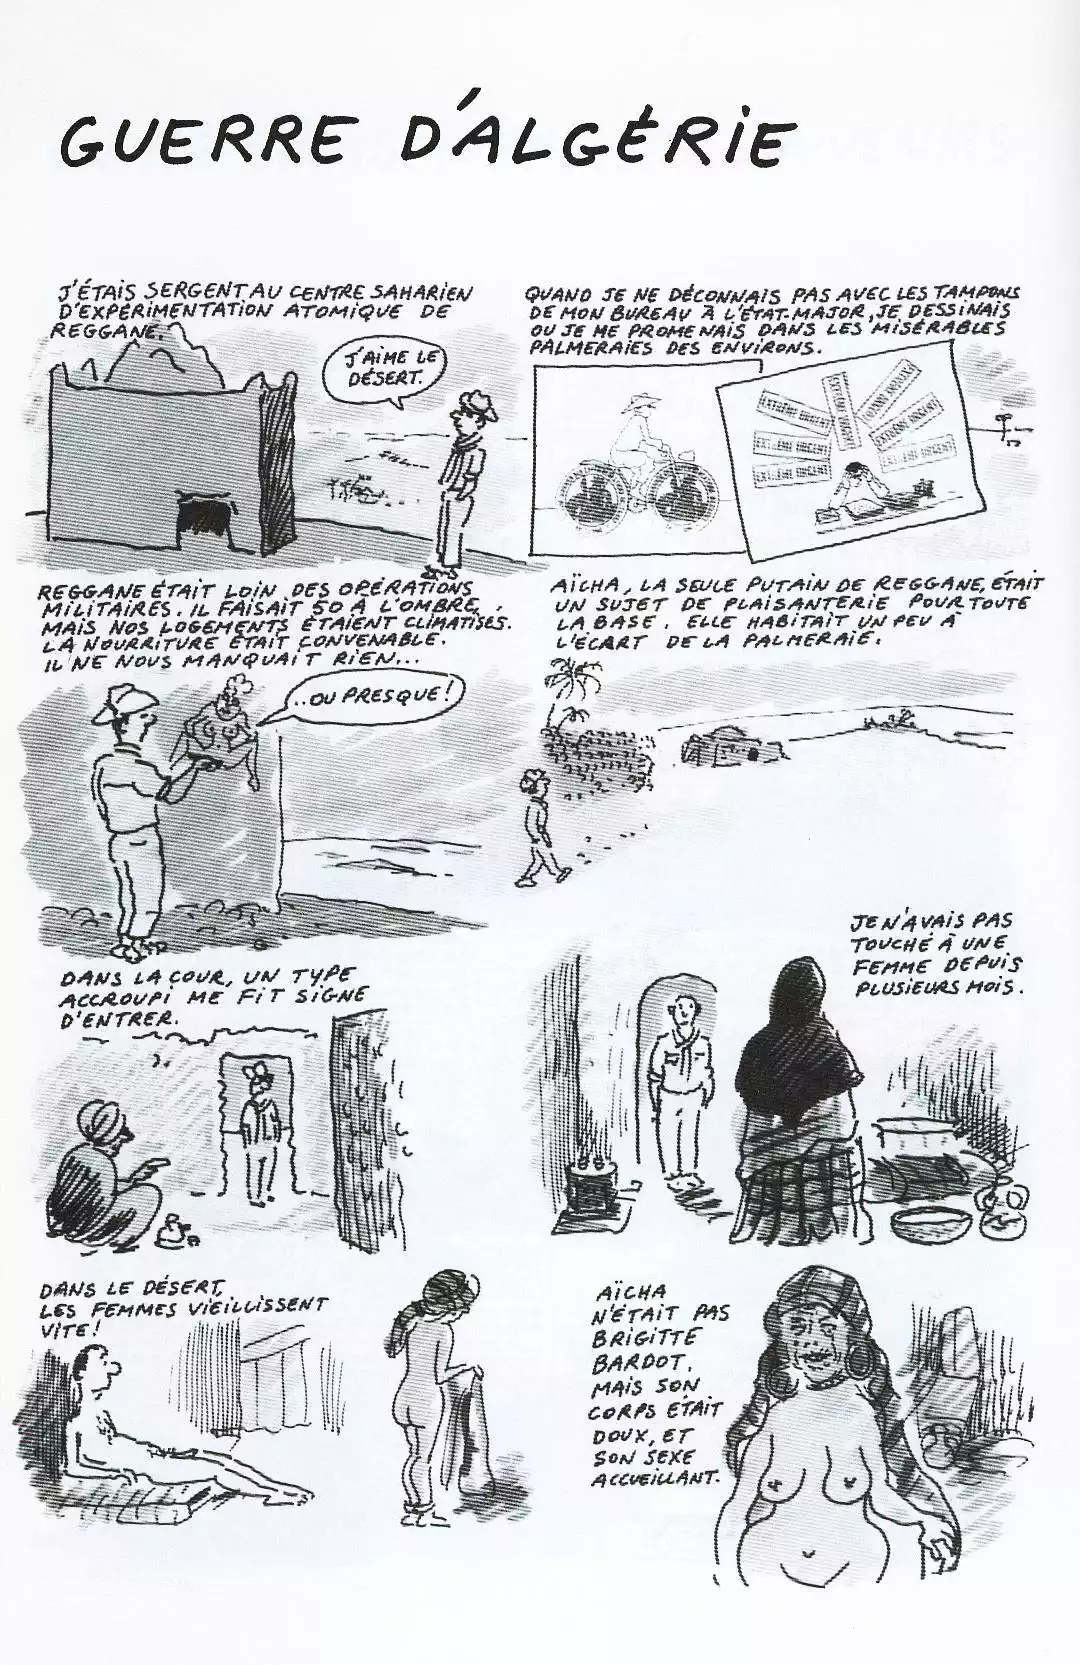 GUERRE D'ALGÉRIE
J'ÉTAIS SERGENT AU CENTRE SAHARIEN
D'EXPÉRIMENTATION ATOMIQUE DE
REGGANE.
J'AIME LE
DÉSERT.
QUAND JE NE DÉCONNAIS PAS AVEC LES TAMPONS
DE MON BUREAU À L'ÉTAT-MAJOR, JE DESSINAIS
OU JE ME PROMENAIS DANS LES MISÉRABLES
PALMERAIES DES ENVIRONS.
EXTRÊME URGENT
EXTRÊME URGENT
EXTRÊME URGENT
EXTRÊME URGENT
EXTRÊME URGENT
REGGANE ÉTAIT LOIN DES OPÉRATIONS
MILITAIRES. IL FAISAIT 50 À L'OMBRE,
MAIS NOS LOGEMENTS ÉTAIENT CLIMATISÉS.
LA NOURRITURE ÉTAIT CONVENABLE.
IL NE NOUS MANQUAIT RIEN...
...OU PRESQUE!
AÏCHA, LA SEULE PUTAIN DE REGGANE, ÉTAIT
UN SUJET DE PLAISANTERIE POUR TOUTE
LA BASE. ELLE HABITAIT UN PEU À
L'ÉCART DE LA PALMERAIE.
DANS LA COUR, UN TYPE
ACCROUPI ME FIT SIGNE
D'ENTRER.
JE N'AVAIS PAS
TOUCHÉ À UNE
FEMME DEPUIS
PLUSIEURS MOIS.
DANS LE DÉSERT,
LES FEMMES VIEILLISSENT
VITE!
AÏCHA
N'ÉTAIT PAS
BRIGITTE
BARDOT,
MAIS SON
CORPS ÉTAIT
DOUX, ET
SON SEXE
ACCUEILLANT.